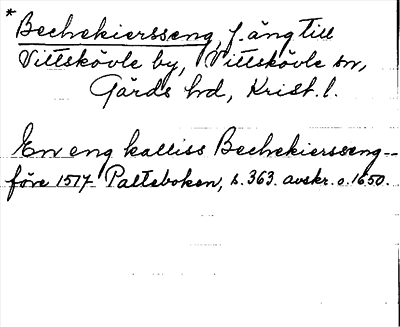 *Bechekiersseng, f. äng till
Vittskövle by, Vittskövle sn,
Gärds hd, Krist. l.
En eng kalliss Bechekiersseng --
före 1517 Palteboken, s. 363. avskr. o. 1650.